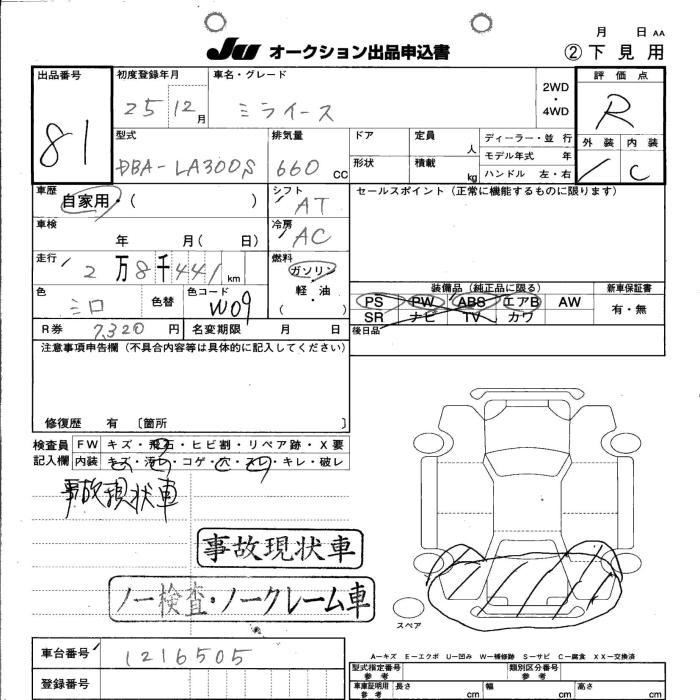 月 日 AA
JU オークション出品申込書 ②下見用
出品番号 初度登録年月 車名・グレード 2WD・4WD 評価点
81 25 12月 ミライース R
型式 排気量 ドア 定員 人 ディーラー・並 行 外装 内装
DBA-LA300S 660 CC 形状 積載 kg モデル年式 年 / C
ハンドル 左・右
車歴 シフト セールスポイント（正常に機能するものに限ります）
自家用・( ) AT
車検 冷房
年 月( 日) AC
走行 燃料
2万8千441km ガソリン
軽・油
( )
色 色替 色コード 装備品（純正品に限る） 新車保証書
シロ W09 PS PW ABS エアB AW 有・無
SR ナビ TV カワ
R券 7,320円 名変期限 月 日 後日品
注意事項申告欄（不具合内容等は具体的に記入してください）
修復歴 有 〔箇所 〕
検査員 FW キズ・飛石・ヒビ割・リペア跡・X要
記入欄 内装 キズ・汚・コゲ・穴・スレ・キレ・破レ
事故現状車
事故現状車
ノー検査・ノークレーム車
スペア
車台番号 1216505
A－キズ E－エクボ U－凹み W－補修跡 S－サビ C－腐食 XX－交換済
登録番号
型式指定番号 参考 類別区分番号 参考
車庫証明用 参考 長さ cm 幅 cm 高さ cm